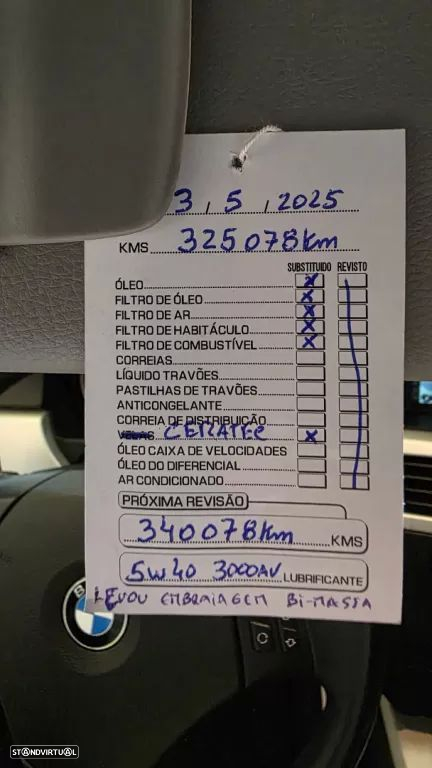 3 / 5 / 2025
KMS 325078Km
SUBSTITUIDO REVISTO
ÓLEO X
FILTRO DE ÓLEO X
FILTRO DE AR X
FILTRO DE HABITÁCULO X
FILTRO DE COMBUSTÍVEL X
CORREIAS
LÍQUIDO TRAVÕES
PASTILHAS DE TRAVÕES
ANTICONGELANTE
CORREIA DE DISTRIBUIÇÃO
VELAS CERATEC X
ÓLEO CAIXA DE VELOCIDADES
ÓLEO DO DIFERENCIAL
AR CONDICIONADO
PRÓXIMA REVISÃO
340078Km KMS
5W40 3000AV LUBRIFICANTE
LEVOU EMBRAIAGEM BI-MASSA
BMW
STANDVIRTUAL